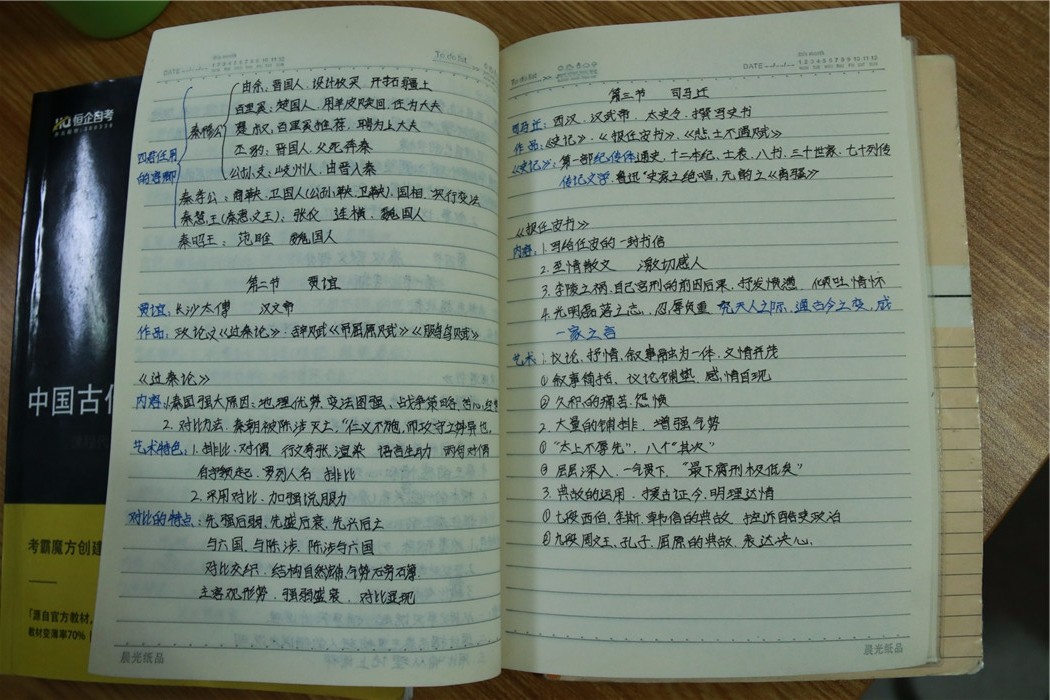 恒企自考
中国古代
考霸魔方创建
「源自官方教材，
教材变薄率70%
DATE
To do list
四君任用
的客卿
秦穆公
由余，晋国人，设计收买 开拓疆土
百里奚：楚国人，用羊皮赎回，任为大夫
蹇叔，百里奚推荐，聘为上大夫
丕豹：晋国人，父死奔秦
公孙支：岐州人，由晋入秦
秦孝公：商鞅，卫国人(公孙鞅、卫鞅)，国相，执行变法
秦惠王(秦惠文王)：张仪 连横，魏国人
秦昭王：范雎 魏国人
第二节 贾谊
贾谊：长沙太傅 汉文帝
作品：政论文《过秦论》，辞赋《吊屈原赋》《鵩鸟赋》
《过秦论》
内容：1.秦国强大原因：地理优势，变法图强、战争策略，
2.对比方法：秦朝被陈涉灭亡，"仁义不施，而攻守之势异也
艺术特色：1.排比、对偶 行文夸张，渲染 语言生动 两句对偶
有字领起，罗列人名 排比
2.采用对比，加强说服力
对比的特点：先强后弱，先盛后衰，先兴后亡
与六国，与陈涉，陈涉与六国
对比交织，结构自然
主客观形势，强弱盛衰，对比显现
晨光纸品
To do list
DATE
第三节 司马迁
司马迁：西汉，汉武帝，太史令，撰写史书
作品：《史记》、《报任安书》、《悲士不遇赋》
《史记》：第一部纪传体通史，十二本纪，十表，八书，三十世家，七十列传
传记文学，鲁迅"史家之绝唱，无韵之《离骚》
《报任安书》
内容：1.写给任安的一封书信
2.至情散文 激切感人
3.李陵之祸，自己宫刑的前因后果，抒发愤懑，倾吐情怀
4.光明磊落之志，忍辱负重 究天人之际，通古今之变，成
一家之言
艺术：1.议论，抒情，叙事融为一体，文情并茂
①叙事简括、议论铺垫，感情自现
②久积的痛苦、怨愤
2.大量的铺排，增强气势
①"太上不辱先"，八个"其次"
②层层深入，一气贯下，"最下腐刑极矣"
3.典故的运用，援古证今，明理达情
①七段西伯、李斯、韩信的典故，控诉酷吏政治
②九段周文王、孔子、屈原的典故，表达决心.
晨光纸品